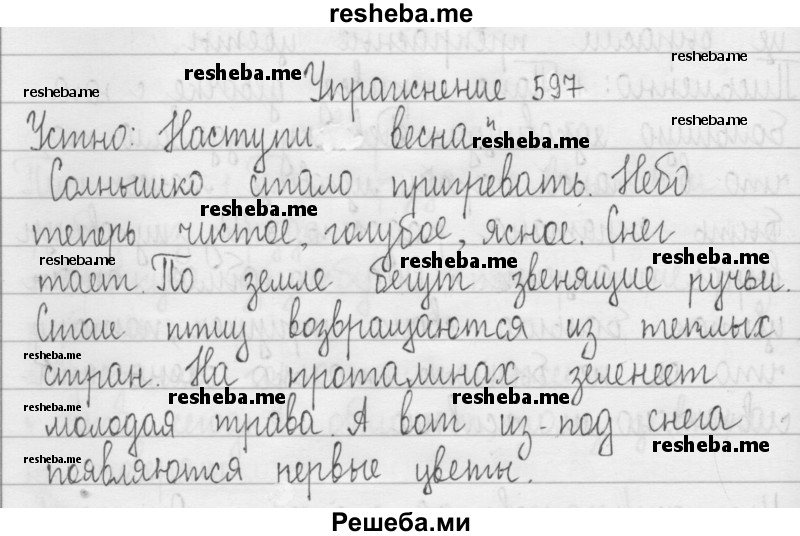 resheba.me
resheba.me resheba.me
resheba.me Упражнение 597
resheba.me
Устно: Наступи весна" resheba.me
Солнышко стало пригревать. Небо
resheba.me
теперь чистое, голубое, ясное. Снег
resheba.me resheba.me resheba.me
тает. По земле бегут звенящие ручьи.
Стаи птиц возвращаются из теплых
resheba.me
стран. На проталинах зеленеет
resheba.me resheba.me
resheba.me
молодая трава. А вот из-под снега
resheba.me resheba.me
появляются первые цветы.
Решеба.ми